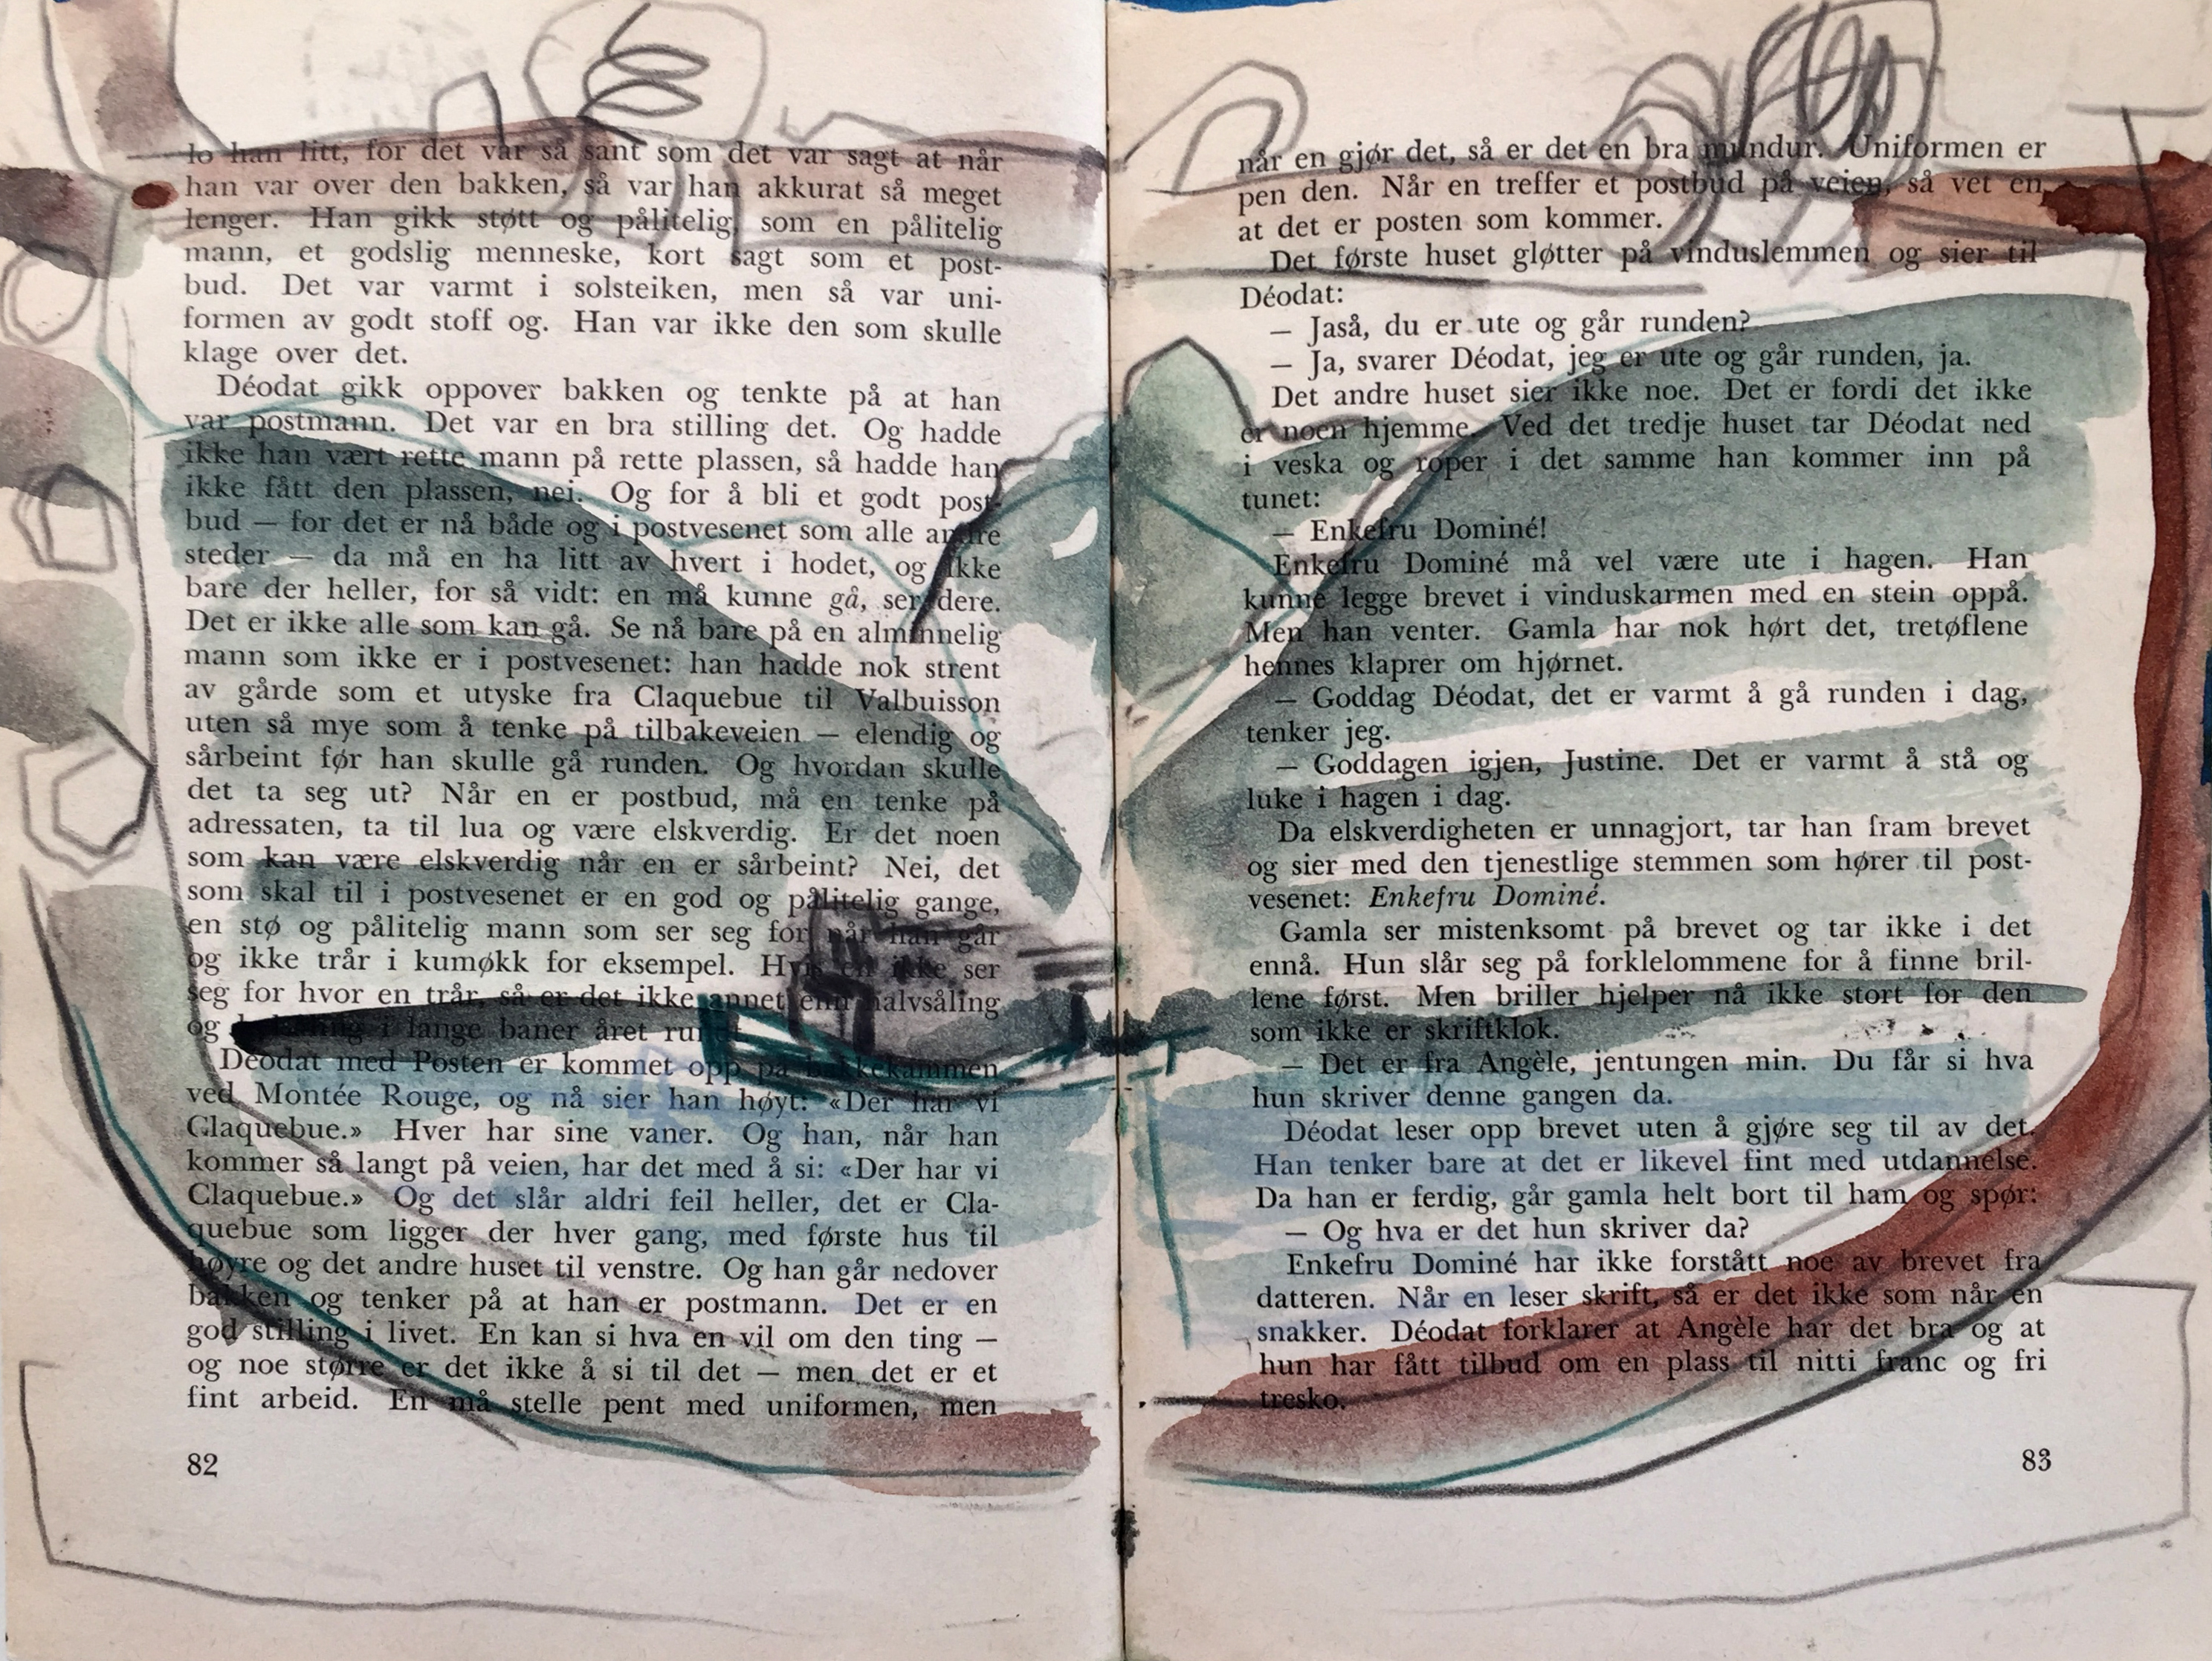 lo han litt, for det var så sant som det var sagt at når
han var over den bakken, så var han akkurat så meget
lenger. Han gikk støtt og pålitelig, som en pålitelig
mann, et godslig menneske, kort sagt som et post-
bud. Det var varmt i solsteiken, men så var uni-
formen av godt stoff og. Han var ikke den som skulle
klage over det.
Déodat gikk oppover bakken og tenkte på at han
var postmann. Det var en bra stilling det. Og hadde
ikke han vært rette mann på rette plassen, så hadde han
ikke fått den plassen, nei. Og for å bli et godt post-
bud — for det er nå både og i postvesenet som alle andre
steder — da må en ha litt av hvert i hodet, og ikke
bare der heller, for så vidt: en må kunne gå, ser dere.
Det er ikke alle som kan gå. Se nå bare på en alminnelig
mann som ikke er i postvesenet: han hadde nok strent
av gårde som et utyske fra Claquebue til Valbuisson
uten så mye som å tenke på tilbakeveien — elendig og
sårbeint før han skulle gå runden. Og hvordan skulle
det ta seg ut? Når en er postbud, må en tenke på
adressaten, ta til lua og være elskverdig. Er det noen
som kan være elskverdig når en er sårbeint? Nei, det
som skal til i postvesenet er en god og pålitelig gange,
en stø og pålitelig mann som ser seg for når han går
og ikke trår i kumøkk for eksempel. Hvis en ikke ser
seg for hvor en trår, så er det ikke annet enn halvsåling
og i lange baner året rundt.
Déodat med Posten er kommet opp på bakkekammen
ved Montée Rouge, og nå sier han høyt: «Der har vi
Claquebue.» Hver har sine vaner. Og han, når han
kommer så langt på veien, har det med å si: «Der har vi
Claquebue.» Og det slår aldri feil heller, det er Cla-
quebue som ligger der hver gang, med første hus til
høyre og det andre huset til venstre. Og han går nedover
bakken og tenker på at han er postmann. Det er en
god stilling i livet. En kan si hva en vil om den ting —
og noe større er det ikke å si til det — men det er et
fint arbeid. En må stelle pent med uniformen, men
82
når en gjør det, så er det en bra mundur. Uniformen er
pen den. Når en treffer et postbud på veien, så vet en
at det er posten som kommer.
Det første huset gløtter på vinduslemmen og sier til
Déodat:
— Jaså, du er ute og går runden?
— Ja, svarer Déodat, jeg er ute og går runden, ja.
Det andre huset sier ikke noe. Det er fordi det ikke
er noen hjemme. Ved det tredje huset tar Déodat ned
i veska og roper i det samme han kommer inn på
tunet:
— Enkefru Dominé!
Enkefru Dominé må vel være ute i hagen. Han
kunne legge brevet i vinduskarmen med en stein oppå.
Men han venter. Gamla har nok hørt det, tretøflene
hennes klaprer om hjørnet.
— Goddag Déodat, det er varmt å gå runden i dag,
tenker jeg.
— Goddagen igjen, Justine. Det er varmt å stå og
luke i hagen i dag.
Da elskverdigheten er unnagjort, tar han fram brevet
og sier med den tjenestlige stemmen som hører til post-
vesenet: Enkefru Dominé.
Gamla ser mistenksomt på brevet og tar ikke i det
ennå. Hun slår seg på forklelommene for å finne bril-
lene først. Men briller hjelper nå ikke stort for den
som ikke er skriftklok.
— Det er fra Angèle, jentungen min. Du får si hva
hun skriver denne gangen da.
Déodat leser opp brevet uten å gjøre seg til av det.
Han tenker bare at det er likevel fint med utdannelse.
Da han er ferdig, går gamla helt bort til ham og spør:
— Og hva er det hun skriver da?
Enkefru Dominé har ikke forstått noe av brevet fra
datteren. Når en leser skrift, så er det ikke som når en
snakker. Déodat forklarer at Angèle har det bra og at
hun har fått tilbud om en plass til nitti franc og fri
tresko.
83